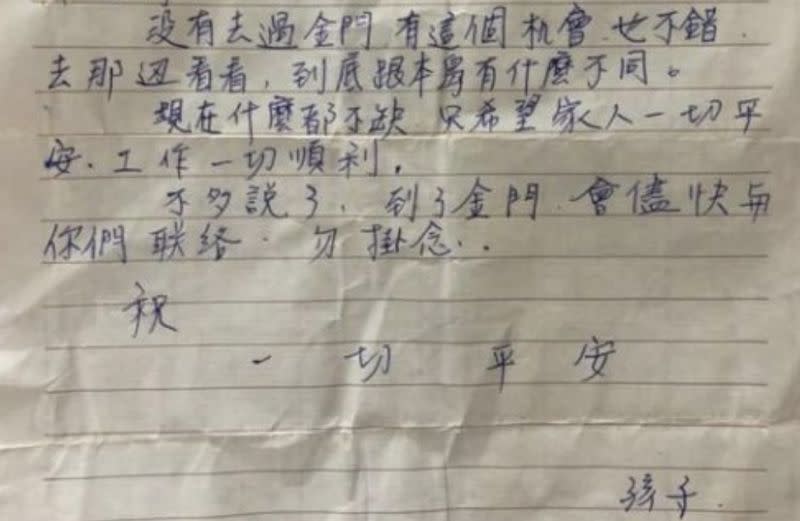 没有去過金門,有這個机會.也不錯.
去那边看看,到底跟本島有什麼不同。
現在什麼都不缺 只希望家人一切平
安.工作一切順利.
不多説了.到了金門.會儘快与
你們联络.勿掛念..
祝
一切平安
孩子.